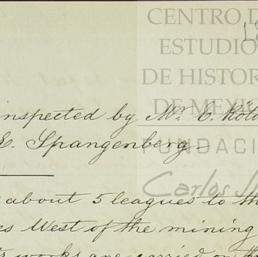 CENTRO D
ESTUDIO
DE HISTOR
DE MÉXI
FUNDACI
inspected by Mr. C.
E. Spangenberg.
Carlos
about 5 leagues to th
es West of the mining
works are carried on